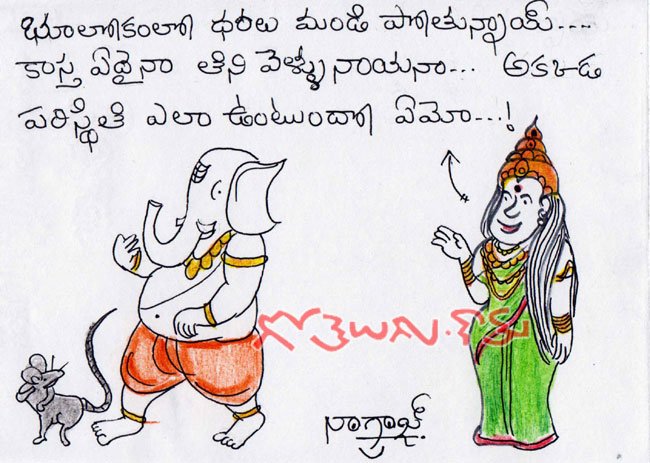 భూలోకంలో ధరలు మండి పోతున్నాయ్....
కాస్త ఏదైనా తిని వెళ్ళు నాయనా... అక్కడ
పరిస్థితి ఎలా ఉంటుందో ఏమో...!
గోతెలుగు.కామ్
నాగ్రాజ్.